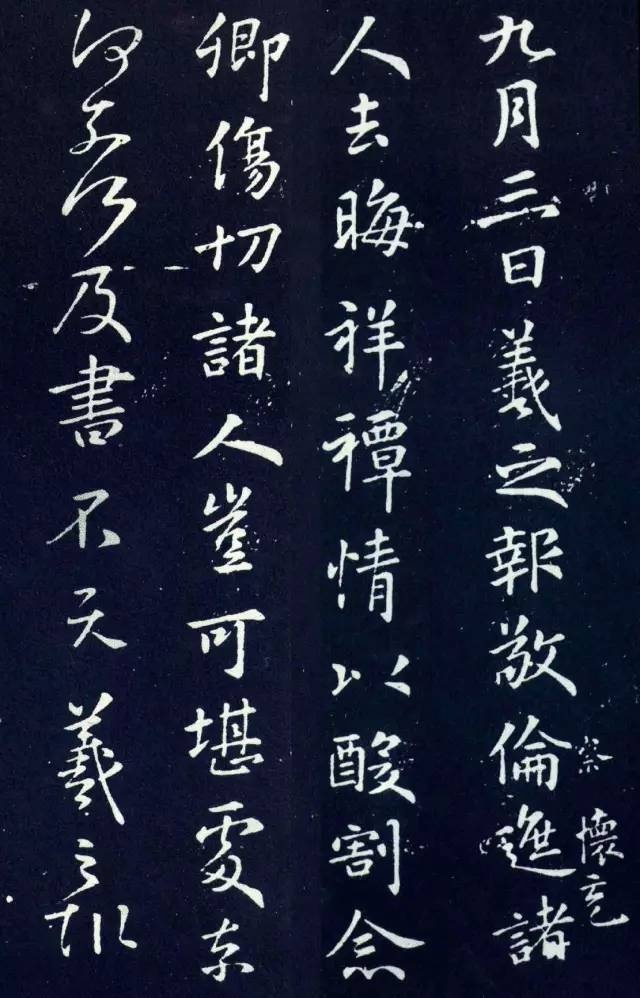 九月三日羲之報敬倫遮諸
察懷充
人去晦祥禫情以酸割念
卿傷切諸人豈可堪處奈
何奈何及書不 羲之報